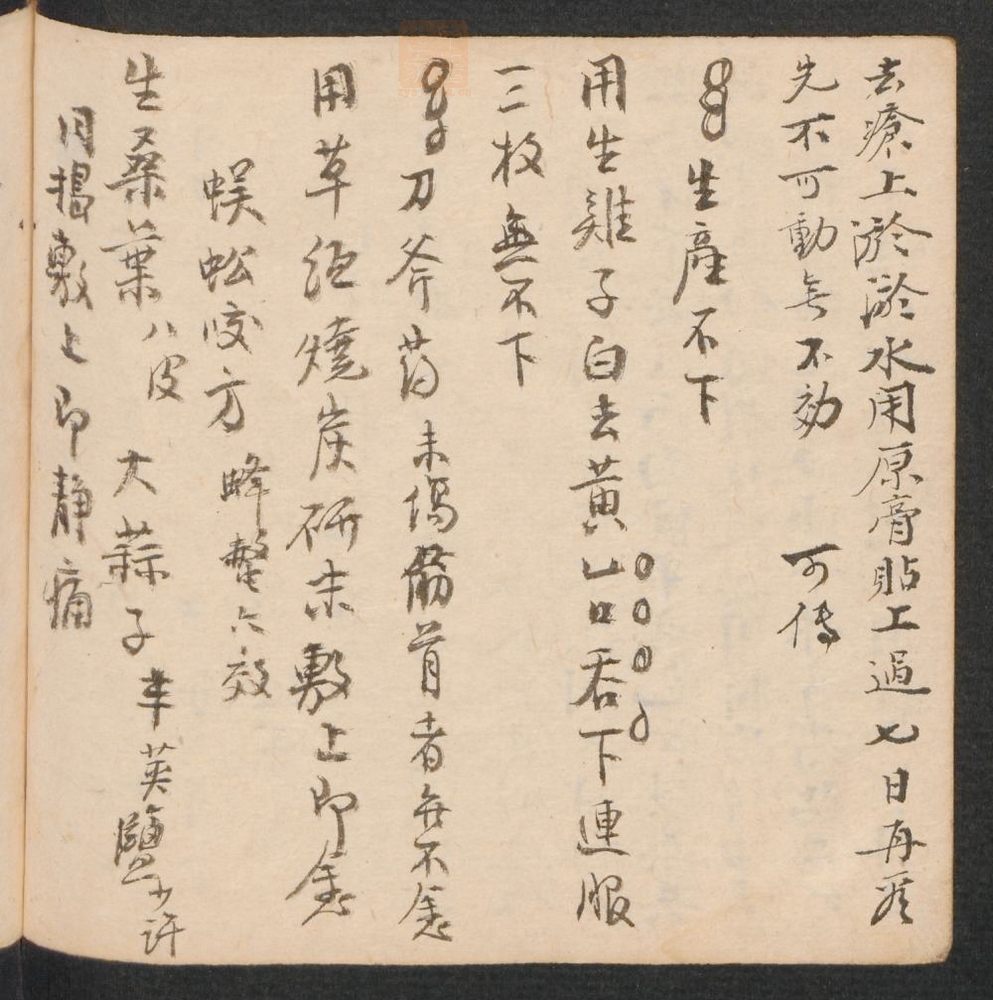 去瘡上淤淤水用原膏貼上過七日再
先不可動無不効 可傳
生產不下
用生雞子白去黃 口吞下連服
一二枚無不下
刀斧药 未傷筋骨者無不愈
用草 燒炭研末敷上即愈
蜈蚣咬方 蜂螫亦效
生桑葉八皮 大蒜子 半英鹽少許
同搗敷上即靜痛